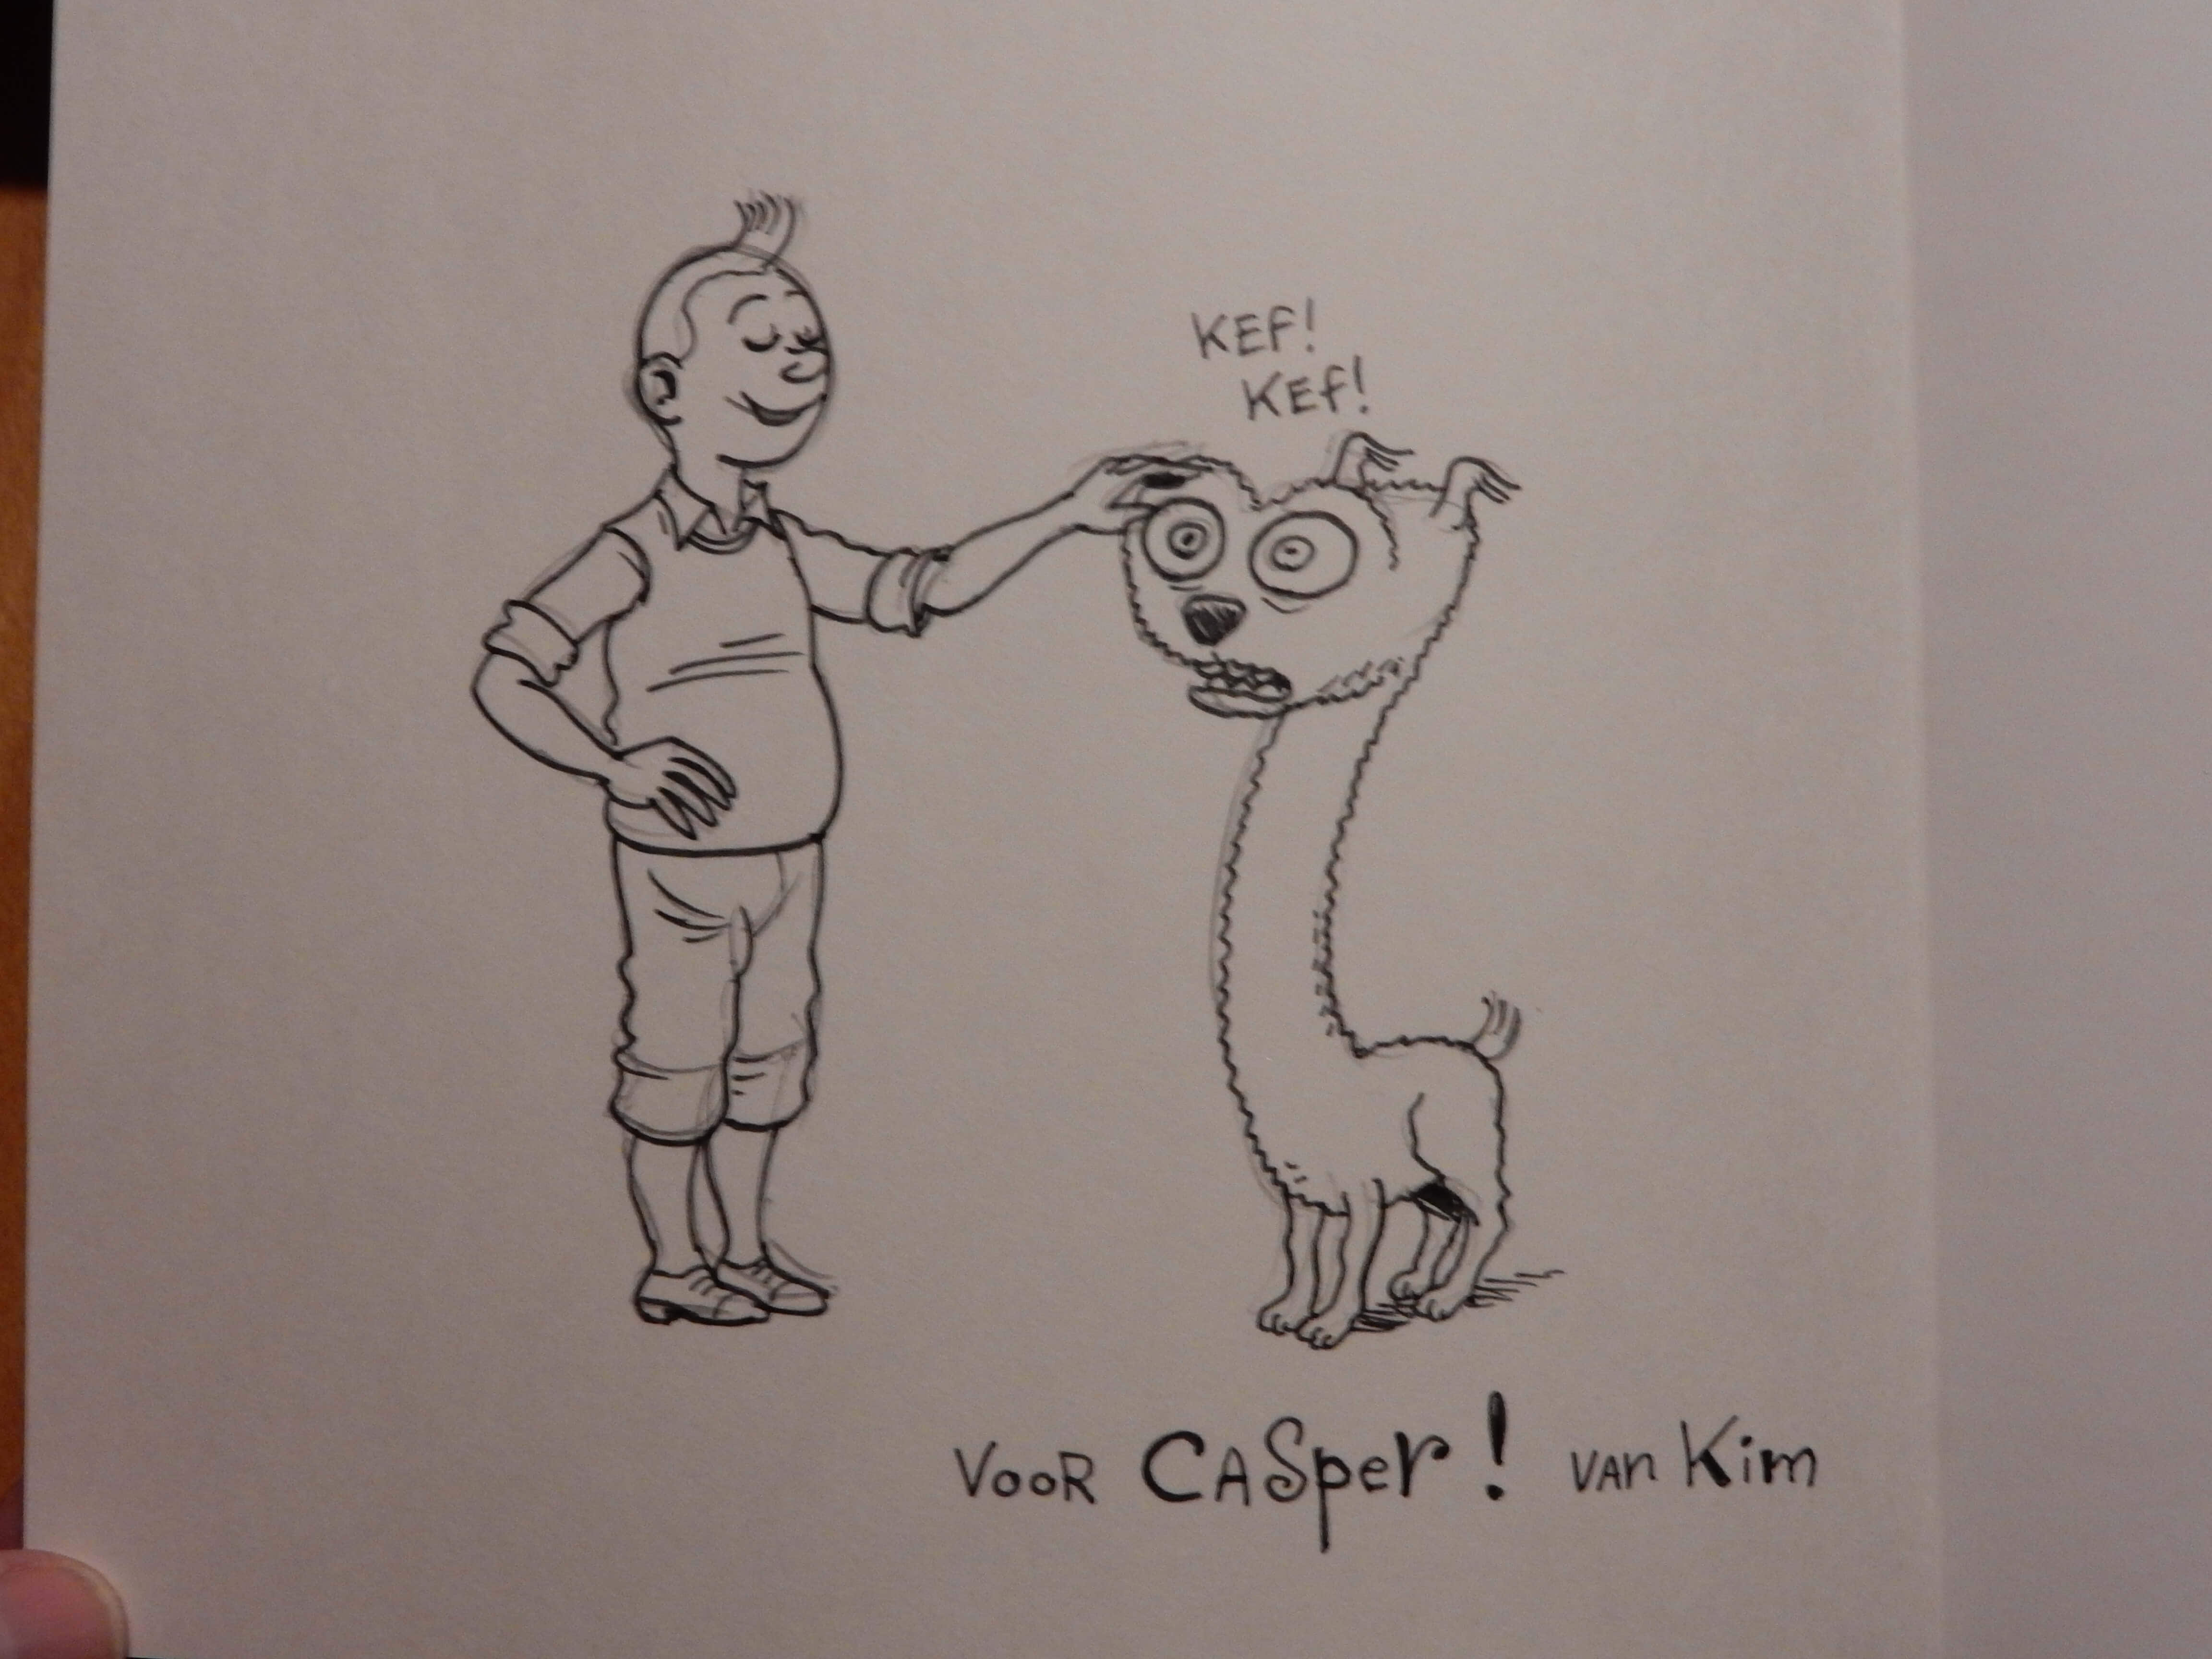 KEF!
KEF!
VOOR CASPER! VAN Kim